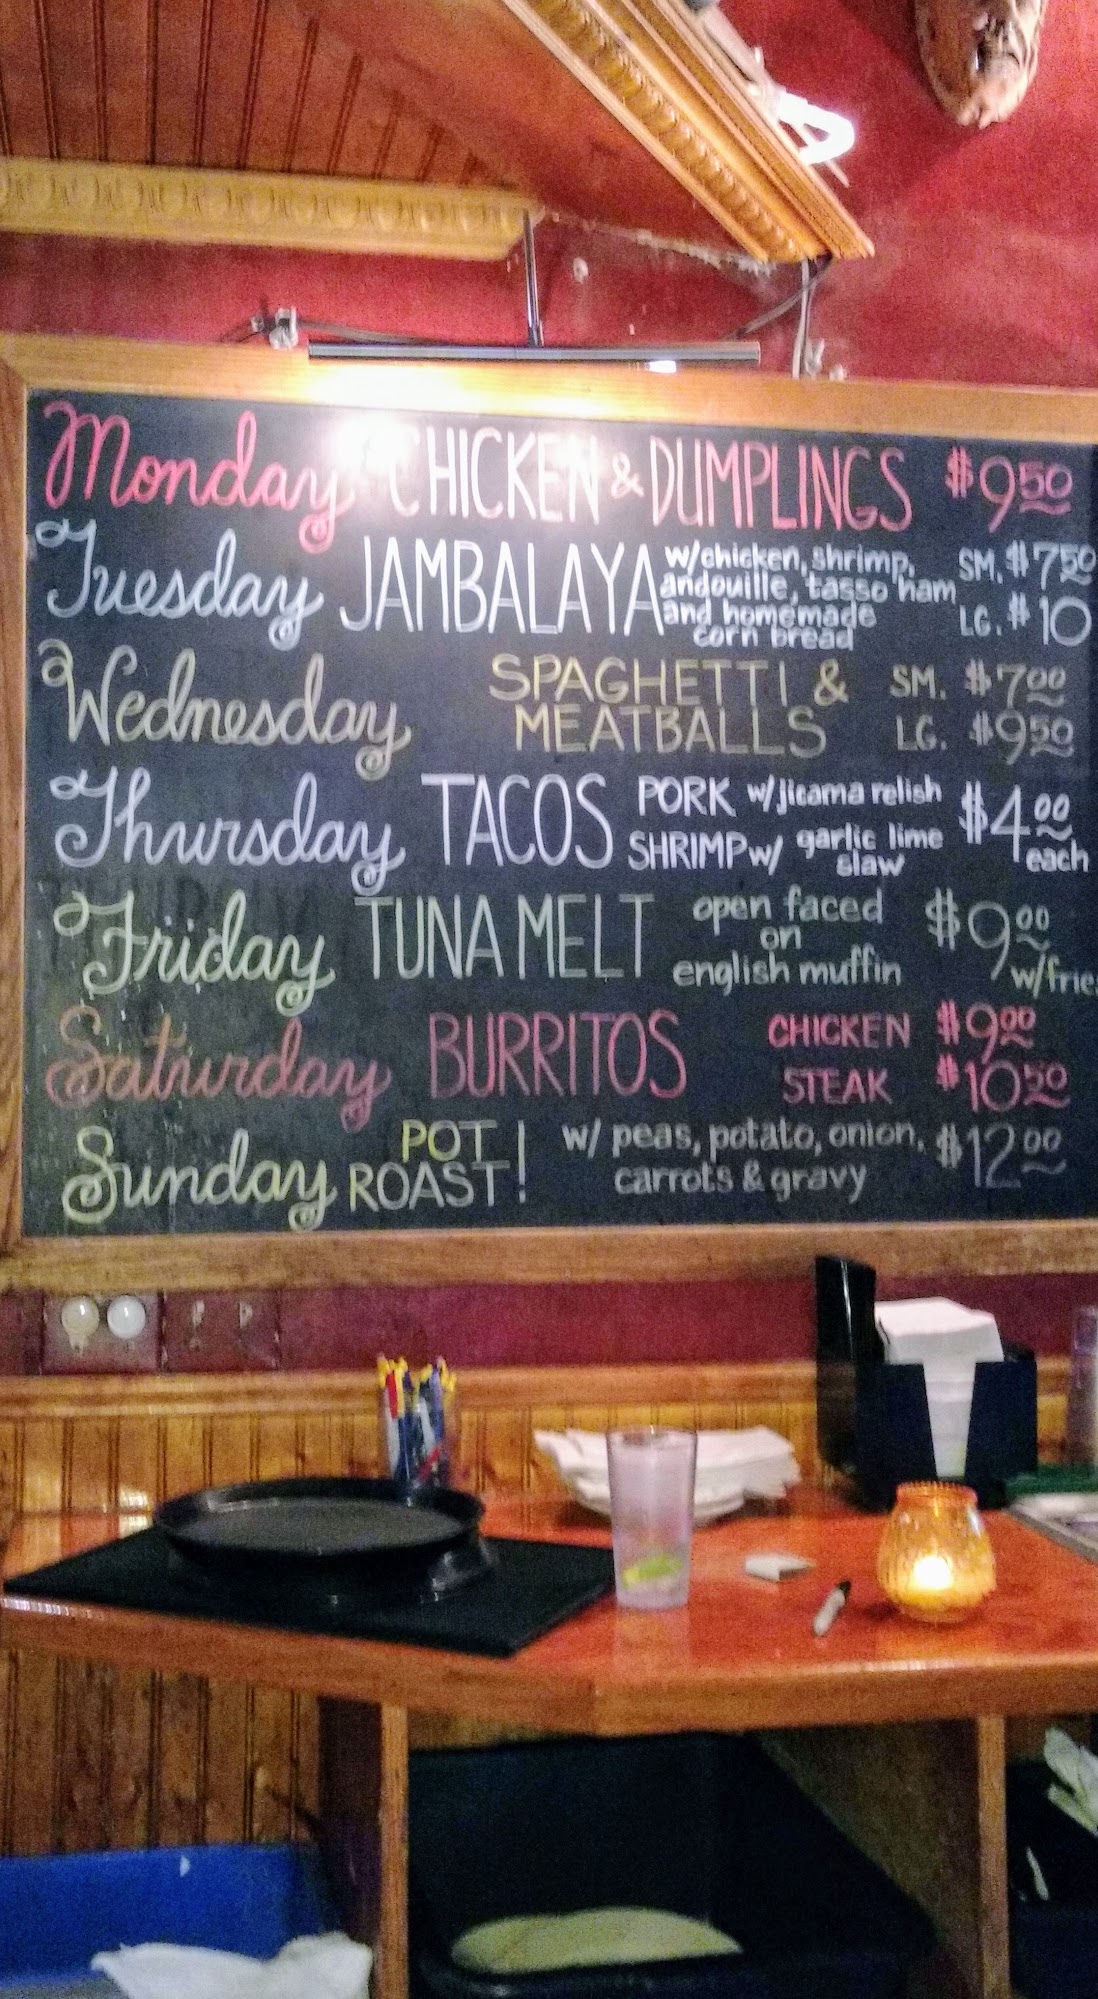 Monday CHICKEN & DUMPLINGS $9.50
Tuesday JAMBALAYA w/chicken, shrimp, andouille, tasso ham and homemade corn bread SM. $7.50 LG. $10
Wednesday SPAGHETTI & MEATBALLS SM. $7.00 LG. $9.50
Thursday TACOS PORK w/jicama relish SHRIMP w/ garlic lime slaw $4.00 each
Friday TUNA MELT open faced on english muffin $9.00 w/fries
Saturday BURRITOS CHICKEN $9.00 STEAK $10.50
Sunday POT ROAST! w/ peas, potato, onion, carrots & gravy $12.00